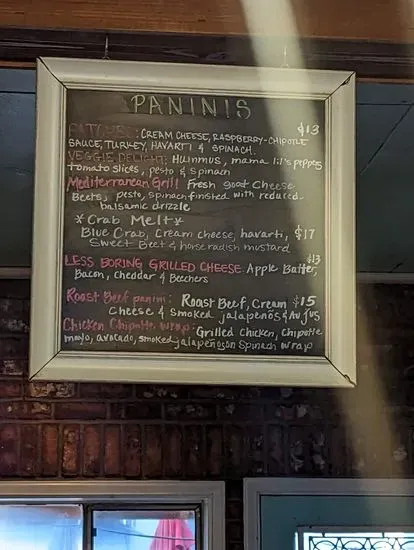 PANINIS
: CREAM CHEESE, RASPBERRY-CHIPOTLE $13
SAUCE, TURKEY, HAVARTI & SPINACH.
VEGGIE DELIGHT: Hummus, mama lil's peppers
tomato slices, pesto & spinach
Mediterranean Grill Fresh goat Cheese
Beets, pesto, spinach finished with reduced
balsamic drizzle
*Crab Melt*
Blue Crab, Cream cheese, havarti, $17
Sweet Beet & horseradish mustard
$13
LESS BORING GRILLED CHEESE: Apple Butter,
Bacon, cheddar & Beechers
Roast Beef panini: Roast Beef, Cream $15
Cheese & smoked jalapeños & Au jus
Chicken Chipotle wrap: Grilled Chicken, Chipotle
mayo, avocado, smoked jalapeños on Spinach wrap